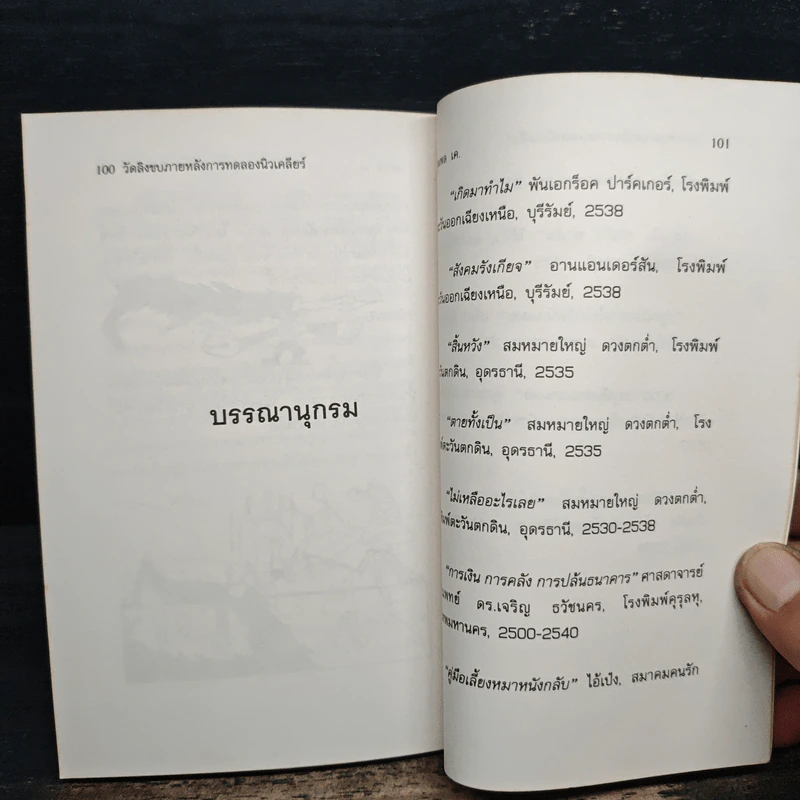 100 วัดลิงขบภายหลังการทดลองนิวเคลียร์
บรรณานุกรม
101
เค.
"เกิดมาทำไม" พันเอกร็อค ปาร์คเกอร์, โรงพิมพ์
ะวันออกเฉียงเหนือ, บุรีรัมย์, 2538
"สังคมรังเกียจ" อานแอนเดอร์สัน, โรงพิมพ์
ะวันออกเฉียงเหนือ, บุรีรัมย์, 2538
"สิ้นหวัง" สมหมายใหญ่ ดวงตกต่ำ, โรงพิมพ์
ตะวันตกดิน, อุดรธานี, 2535
"ตายทั้งเป็น" สมหมายใหญ่ ดวงตกต่ำ, โรง
พ์ตะวันตกดิน, อุดรธานี, 2535
"ไม่เหลืออะไรเลย" สมหมายใหญ่ ดวงตกต่ำ,
มพ์ตะวันตกดิน, อุดรธานี, 2530-2538
"การเงิน การคลัง การปล้นธนาคาร" ศาสดาจารย์
แพทย์ ดร.เจริญ ธวัชนคร, โรงพิมพ์คุรุลหุ,
ทพมหานคร, 2500-2540
"คู่มือเลี้ยงหมาหนังกลับ" ไอ้เป๋ง, สมาคมคนรัก